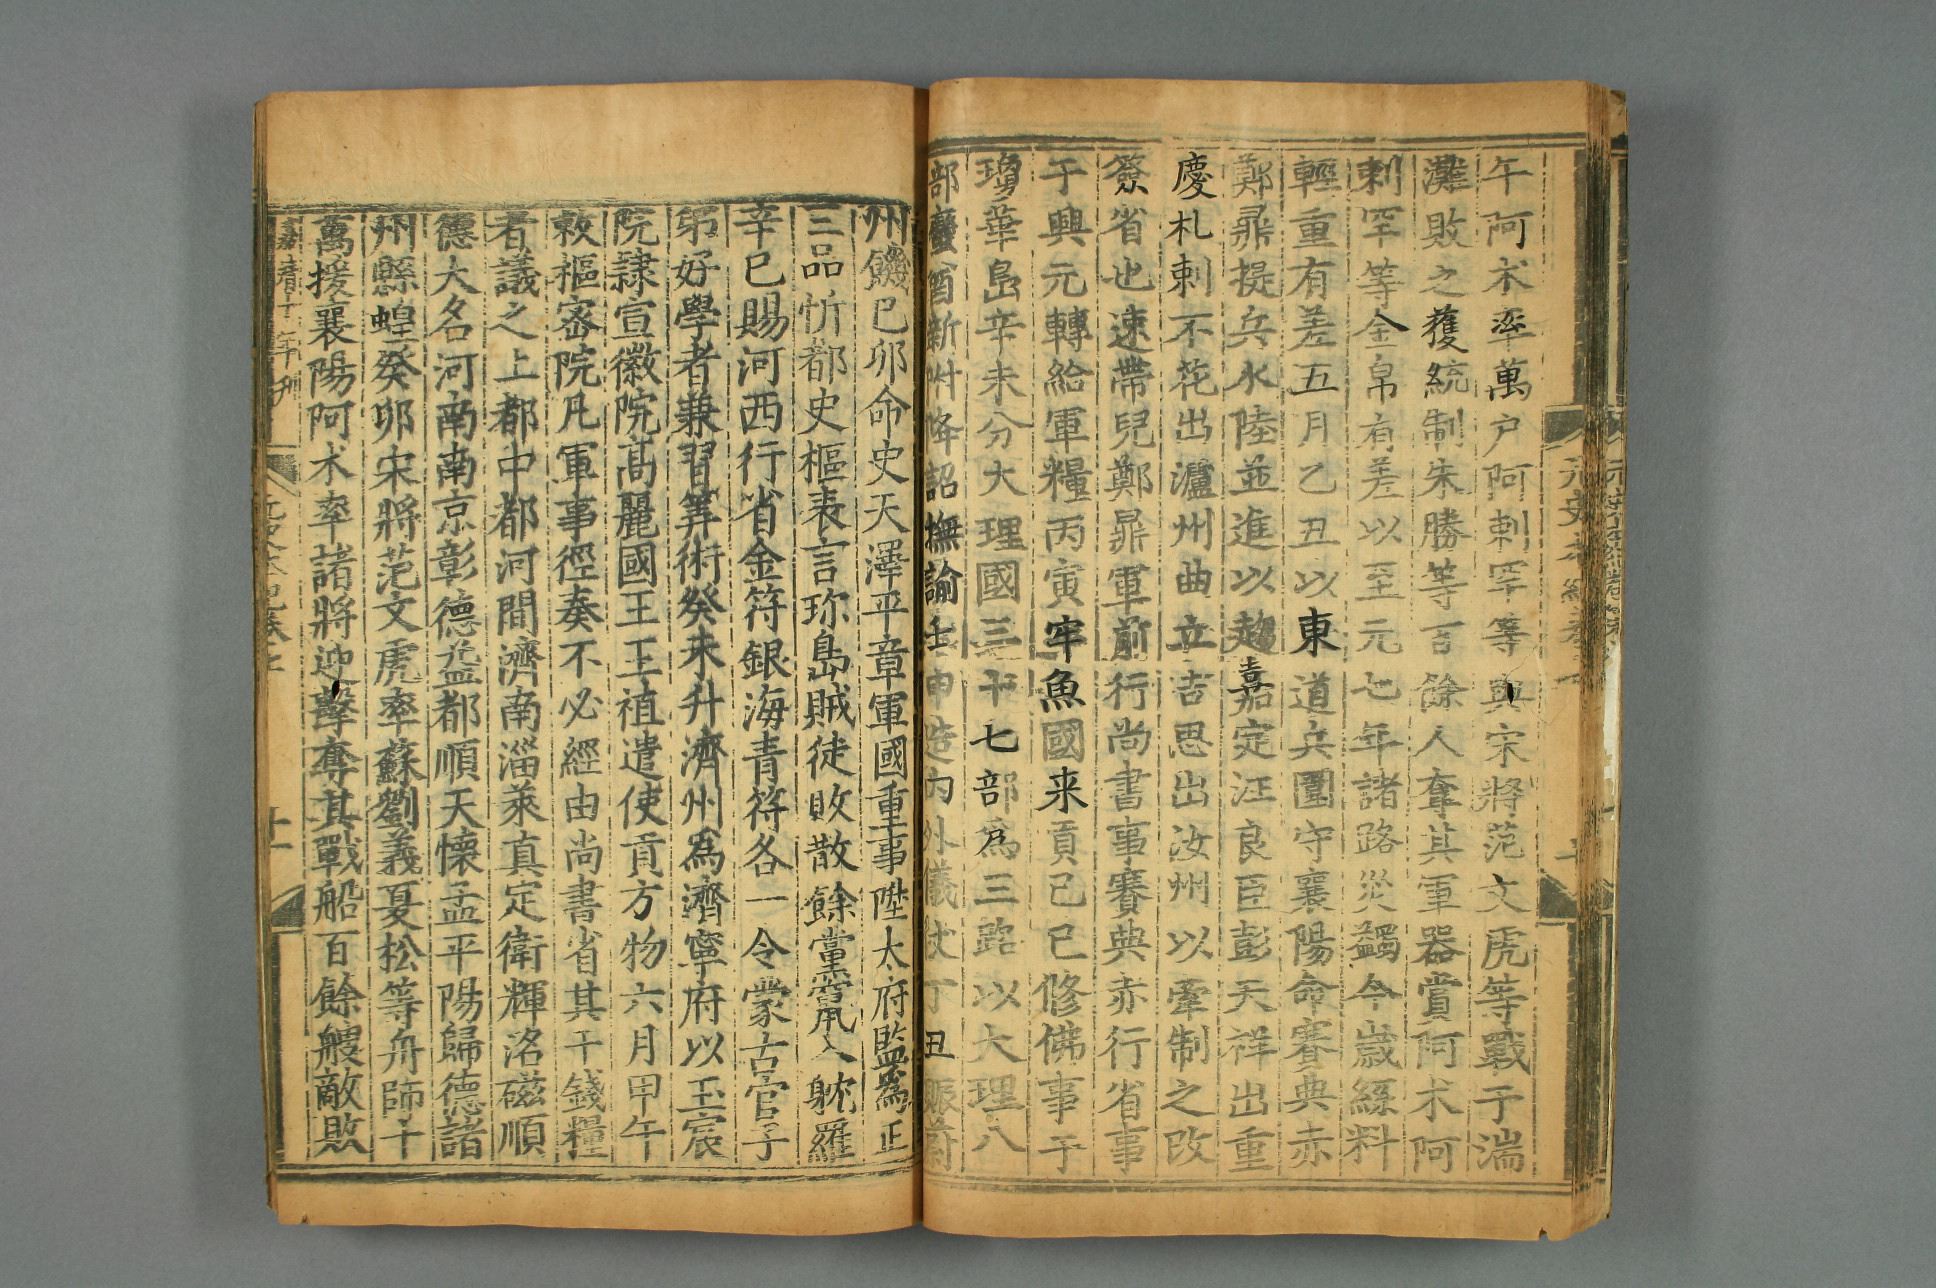 午阿朮率萬户阿剌罕等與宋將范文虎等戰于湍
灘敗之獲統制朱勝等百餘人奪其軍器賞阿朮阿
剌罕等金帛有差以至元七年諸路災蠲今歲絲料
輕重有差五月乙丑以東道兵圍守襄陽命賽典赤
鄭鼎提兵水陸並進以趨嘉定汪良臣彭天祥出重
慶札剌不花出瀘州曲立吉思出汝州以牽制之改
簽省也速帶兒鄭鼎軍前行尚書事賽典赤行省事
于興元轉給軍糧丙寅牢魚國来貢己巳修佛事于
瓊華島辛未分大理國三十七部爲三路以大理八
部蠻酋新附降詔撫諭壬申造内外儀仗丁丑賑蔚
州饑己卯命史天澤平章軍國重事陞太府監爲正
三品忻都史樞表言珍島賊徒敗散餘黨竄入躭羅
辛巳賜河西行省金符銀海青符各一令蒙古官子
弟好學者兼習筭術癸未升濟州爲濟寧府以玉宸
院隷宣徽院髙麗國王王植遣使貢方物六月甲午
敕樞宻院凡軍事徑奏不必經由尚書省其干錢糧
者議之上都中都河間濟南淄萊真定衛輝洺磁順
德大名河南南京彰德益都順天懷孟平陽歸德諸
州縣蝗癸卯宋將范文虎率蘇劉義夏松等舟師十
萬援襄陽阿朮率諸將迎擊奪其戰船百餘艘敵敗
元史本紀卷七
十一